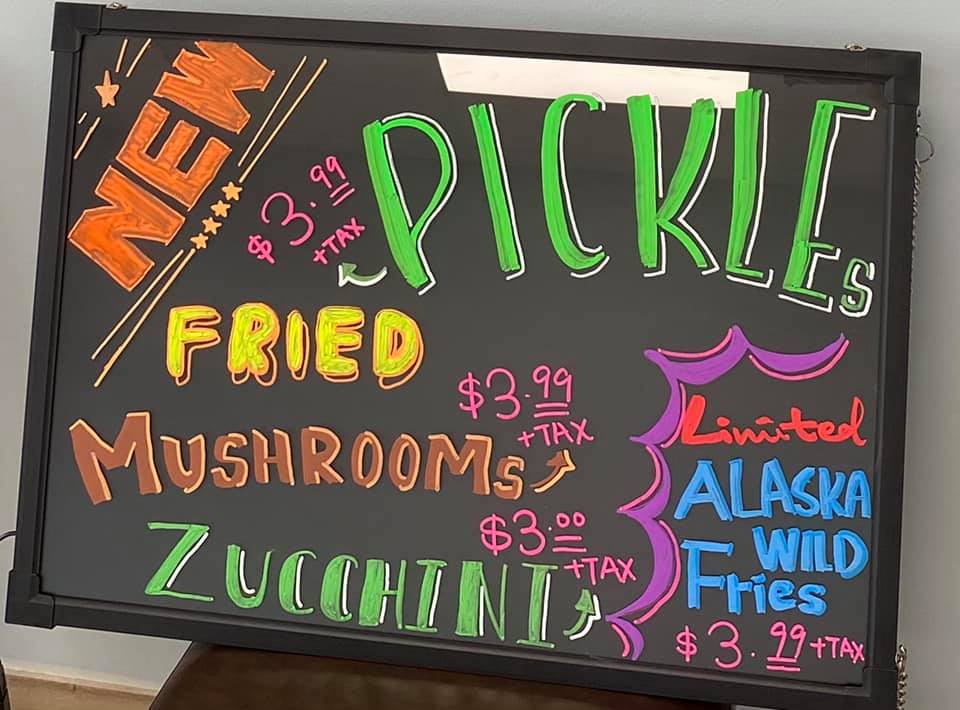 NEW
PICKLEs
$3.99
+TAX
FRIED
$3.99
+TAX
MUSHROOMs
$3.00
+TAX
ZUCCHINI
Limited
ALASKA
WILD
Fries
$3.99 +TAX